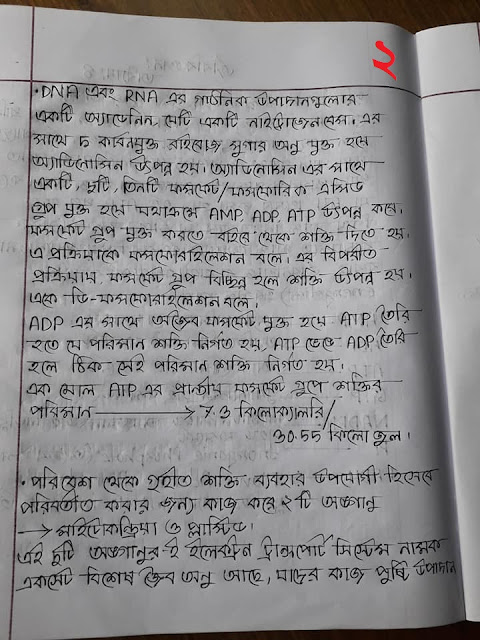 ২
• DNA এবং RNA এর গাঠনিক উপাদানগুলোর
একটি অ্যাডেনিন, যেটি একটি নাইট্রোজেন বেস। এর
সাথে ৫ কার্বনযুক্ত রাইবোজ সুগার অনু যুক্ত হয়ে
অ্যাডিনোসিন উৎপন্ন হয়। অ্যাডিনোসিন এর সাথে
একটি, দুটি, তিনটি ফসফেট/ফসফোরিক এসিড
গ্রুপ যুক্ত হয়ে যথাক্রমে AMP, ADP, ATP উৎপন্ন করে।
ফসফেট গ্রুপ যুক্ত করতে বাইরে থেকে শক্তি দিতে হয়।
এ প্রক্রিয়াকে ফসফোরাইলেশন বলে। এর বিপরীত
প্রক্রিয়ায় ফসফেট গ্রুপ বিচ্ছিন্ন হলে শক্তি উৎপন্ন হয়।
একে ডি-ফসফোরাইলেশন বলে।
ADP এর সাথে অজৈব ফসফেট যুক্ত হয়ে ATP তৈরি
হতে যে পরিমান শক্তি নির্গত হয়, ATP ভেঙে ADP তৈরি
হলে ঠিক সেই পরিমান শক্তি নির্গত হয়।
এক মোল ATP এর প্রান্তীয় ফসফেট গ্রুপে শক্তির
পরিমান ⟶ 7.3 কিলোক্যালরি/
30.55 কিলো জুল।
• পরিবেশ থেকে গৃহীত শক্তি ব্যবহার উপযোগী হিসেবে
পরিবর্তীত করার জন্য কাজ করে ২টি অঙ্গানু
→ মাইটোকন্ড্রিয়া ও প্লাস্টিড।
এই দুটি অঙ্গানুর-ই ইলেকট্রন ট্রান্সপোর্ট সিস্টেম নামক
একসেট বিশেষ জৈব অনু আছে, যাদের কাজ পুষ্টি উপাদান